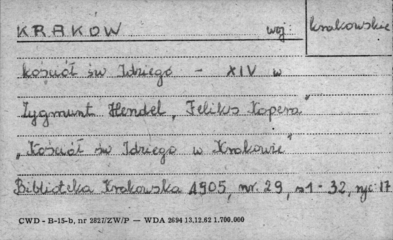 KRAKÓW woj: krakowskie
kościół św Idziego – XIV w
Zygmunt Hendel „Feliks Kopera"
„Kościół św Idziego w Krakowie"
Biblioteka Krakowska 1905, nr. 29, s 1 - 32, ryc. 17
CWD - B-15-b, nr 2827/ZW/P — WDA 2694 13.12.62 1.700.000